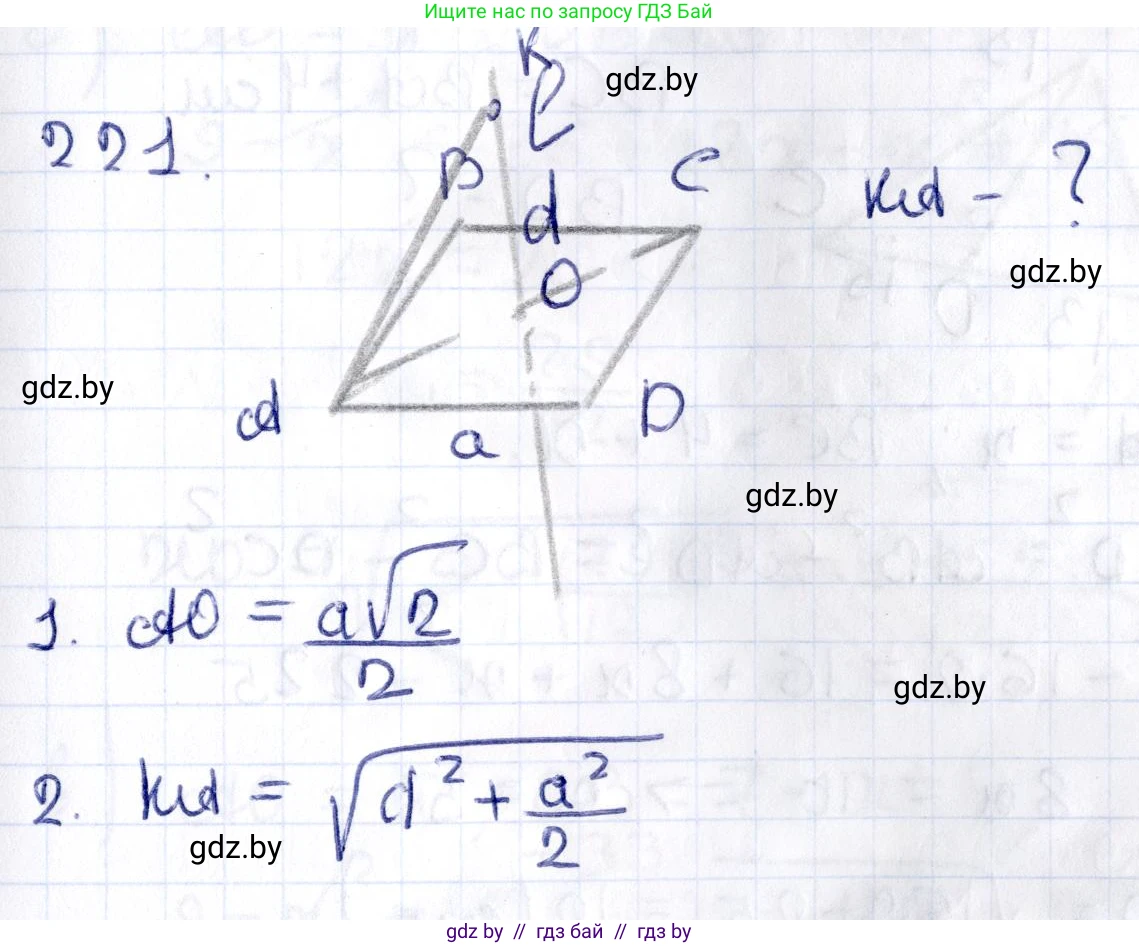 Ищите нас по запросу ГДЗ Бай
K
gdz.by
221.
B
C
d
KA - ?
O
gdz.by
gdz.by
A
D
a
gdz.by
1. AO = a√2/2
gdz.by
2. KA = √(d² + a²/2)
gdz.by
gdz by // гдз бай // гдз by